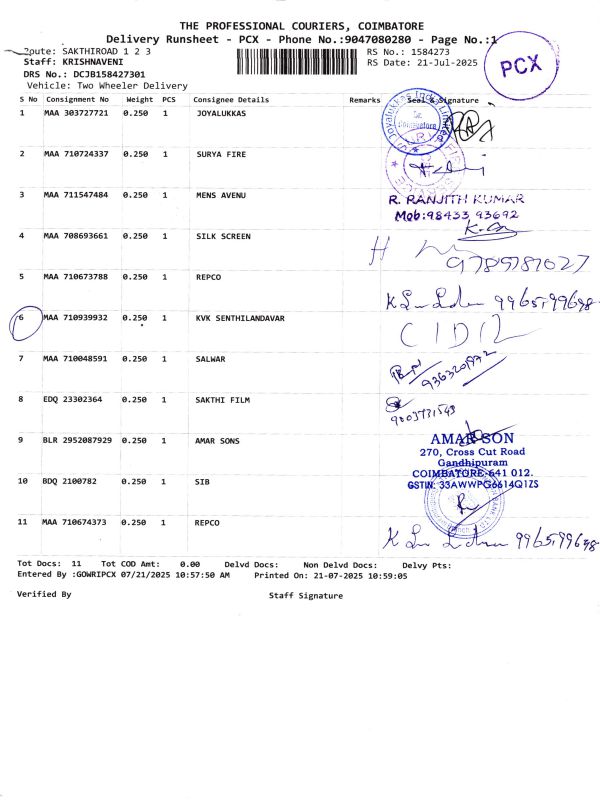 THE PROFESSIONAL COURIERS, COIMBATORE
Delivery Runsheet - PCX - Phone No.:9047080280 - Page No.:1
Route: SAKTHIROAD 1 2 3
RS No.: 1584273
Staff: KRISHNAVENI
RS Date: 21-Jul-2025
PCX
DRS No.: DCJB158427301
Vehicle: Two Wheeler Delivery
S No Consignment No Weight PCS Consignee Details Remarks Seal & Signature
1 MAA 303727721 0.250 1 JOYALUKKAS
2 MAA 710724337 0.250 1 SURYA FIRE
3 MAA 711547484 0.250 1 MENS AVENU
R. RANJITH KUMAR
Mob:98433 93692
4 MAA 708693661 0.250 1 SILK SCREEN
9789787027
5 MAA 710673788 0.250 1 REPCO
9965199698
6 MAA 710939932 0.250 1 KVK SENTHILANDAVAR
7 MAA 710048591 0.250 1 SALWAR
8 EDQ 23302364 1 SAKTHI FILM
0.250
9003731543
9 BLR 2952087929 0.250 1 AMAR SONS
AMAR SON
270, Cross Cut Road
Gandhipuram
COIMBATORE-641 012.
GSTIN: 33AWWPG6614Q1ZS
10 BDQ 2100782 0.250 1 SIB
11 MAA 710674373 0.250 1 REPCO
9965199698
Tot Docs: 11 Tot COD Amt: 0.00 Delvd Docs: Non Delvd Docs: Delvy Pts:
Entered By :GOWRIPCX 07/21/2025 10:57:50 AM Printed On: 21-07-2025 10:59:05
Verified By Staff Signature